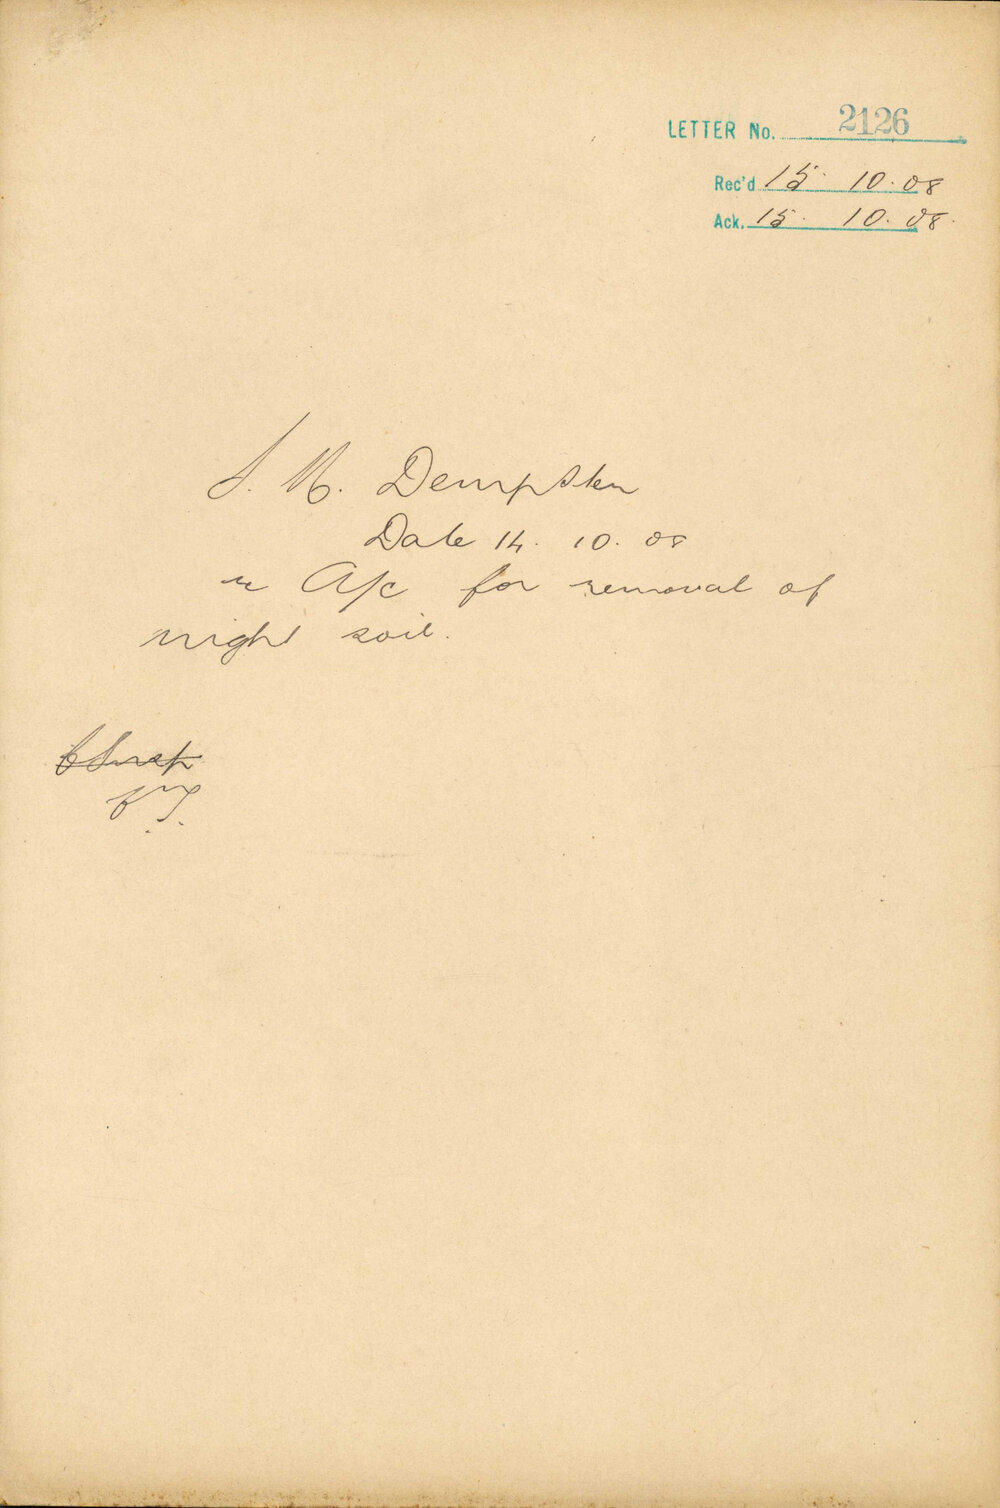 LETTER No. 2126
Rec'd 15. 10. 08
Ack. 15. 10. 08.
Dempster
Date 14. 10. 08
re A/c for removal of
night soil.